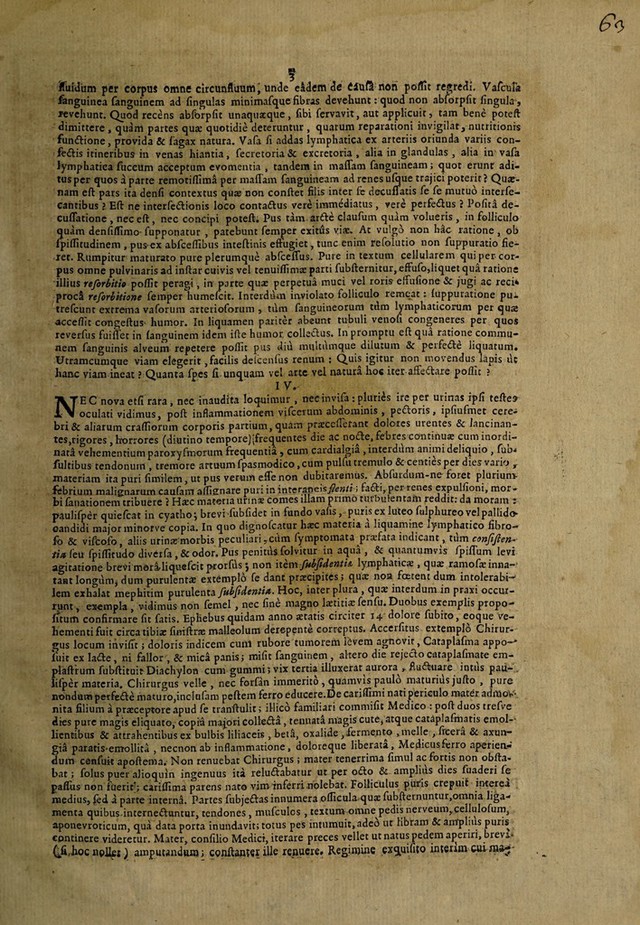 63
3
fluidum per corpus omne circunfluum, unde eâdem de causâ non possit regredi. Vascula
sanguinea sanguinem ad singulas minimasque fibras devehunt: quod non absorpsit singula,
revehunt. Quod recèns absorpsit unaquæque, sibi servavit, aut applicuit, tam benè potest
dimittere, quàm partes quæ quotidiè deteruntur, quarum reparationi invigilat, nutritionis
functione, provida & sagax natura. Vasa si addas lymphatica ex arteriis oriunda variis con-
fectis itineribus in venas hiantia, secretoria & excretoria, alia in glandulas, alia in vasa
lymphatica succum acceptum evomentia, tandem in massam sanguineam; quot erunt adi-
tus per quos à parte remotissimâ per massam sanguineam ad renes usque trajici poterit? Quæ-
nam est pars ita densi contextus quæ non constet filis inter se decussatis se se mutuò interse-
cantibus? Est ne intersectionis loco contactus verè immédiatus, verè perfectus? Positâ de-
cussatione, nec est, nec concipi potest. Pus tàm arctè clausum quàm volueris, in folliculo
quàm densissimo supponatur, patebunt semper exitûs viæ. At vulgò non hâc ratione, ob
spissitudinem, pus ex abscessibus intestinis effugiet, tunc enim resolutio non suppuratio fie-
ret. Rumpitur maturato pure plerumquè abscessus. Pure in textum cellularem qui per cor-
pus omne pulvinaris ad instar cuivis vel tenuissimæ parti substernitur, effuso, liquet quâ ratione
illius resorbitio possit peragi, in parte quæ perpetuâ muci vel roris effusione & jugi ac reci-
procâ resorbitione semper humescit. Interdùm inviolato folliculo remeat: suppuratione pu-
trescunt extrema vasorum arteriosorum, tùm sanguineorum tùm lymphaticorum per quæ
accessit congestus humor. In liquamen pariter abeunt tubuli venosi congeneres per quos
reversus fuisset in sanguinem idem iste humor collectus. In promptu est quâ ratione commu-
nem sanguinis alveum repetere possit pus diù multùmque dilutum & perfectè liquatum.
Utramcumque viam elegerit, facilis descensus renum: Quis igitur non movendus lapis ut
hanc viam ineat? Quanta spes si unquam vel arte vel naturâ hoc iter affectare possit?
IV.
NEC nova etsi rara, nec inaudita loquimur, nec invisa: pluriès ire per urinas ipsi testes
oculati vidimus, post inflammationem viscerum abdominis, pectoris, ipsiusmet cere-
bri & aliarum crassiorum corporis partium, quam præcesserant dolores urentes & lancinan-
tes, rigores, horrores (diutino tempore) frequentes die ac nocte, febres continuæ cum inordi-
natâ vehementium paroxysmorum frequentiâ, cum cardialgiâ, interdùm animi deliquio, sub-
sultibus tendonum, tremore artuum spasmodico, cum pulsu tremulo & centiès per dies vario,
materiam ita puri similem, ut pus verum esse non dubitaremus. Absurdum-ne foret plurium
febrium malignarum causam assignare puri in intraneis stenti; facti, per renes expulsioni, mor-
bi sanationem tribuere? Hæc materia urinæ comes illam primò turbulentam reddit: da moram:
paulisper quiescat in cyatho; brevi subsidet in fundo vasis, puris ex luteo sulphureo vel pallido-
candidi major minorve copia. In quo dignoscatur hæc materia à liquamine lymphatico fibro-
so & viscoso, aliis urinæ morbis peculiari, cùm symptomata præfata indicant, tùm consisten-
tiæ seu spissitudo diversa, & odor. Pus penitùs solvitur in aquâ, & quantumvis spissum levi
agitatione brevi morâ liquescit prorsùs; non item subsidentia lymphaticæ, quæ ramosæ inna-
tant longùm, dum purulentæ extemplò se dant præcipites; quæ non fœtent dum intolerabi-
lem exhalat mephitim purulenta subsidentia. Hoc, inter plura, quæ interdum in praxi occur-
runt, exempla, vidimus non semel, nec sine magno lætitiæ sensu. Duobus exemplis propo-
situm confirmare sit satis. Ephebus quidam anno ætatis circiter 14 dolore subito, eoque ve-
hementi fuit circa tibiæ sinistræ malleolum derepentè correptus. Accersitus extemplò Chirur-
gus locum invisit; doloris indicem cum rubore tumorem levem agnovit, Cataplasma appo-
suit ex lacte, ni fallor, & micâ panis; misit sanguinem, altero die rejecto cataplasmate em-
plastrum substituit Diachylon cum gummi; vix tertia illuxerat aurora, fluctuare intùs pau-
lisper materia. Chirurgus velle, nec forsàn immeritò, quamvis paulò maturiùs justo, pure
nondum perfectè maturo, inclusam pestem ferro educere. De carissimi nati periculo mater admo-
nita filium à præceptore apud se transtulit; illicò familiari commisit Medico: post duos tresve
dies pure magis eliquato, copiâ majori collectâ, tennatâ magis cute, atque cataplasmatis emol-
lientibus & attrahentibus ex bulbis liliaceis, betâ, oxalide, fermento, melle, ficerâ & axun-
giâ paratis emollitâ, necnon ab inflammatione, doloreque liberatâ, Medicus ferro aperien-
dum censuit apostema. Non renuebat Chirurgus; mater tenerrima simul ac fortis non obsta-
bat; solus puer alioquin ingenuus ita reluctabatur ut per octo & ampliùs dies suaderi se
passus non fuerit; carissima parens nato vim inferri nolebat. Folliculus puris crepuit intereà
medius, sed à parte internâ. Partes subjectas innumera ossicula quæ substernuntur, omnia liga-
menta quibus internectuntur, tendones, musculos, textum omne pedis nerveum, cellulosum,
aponevroticum, quâ data porta inundavit; totus pes intumuit, adeò ut libram & ampliùs puris
continere videretur. Mater, consilio Medici, iterare preces vellet ut natus pedem aperiri, brevi
(si hoc nollet) amputandum; constanter ille renuere. Regimine exquisito interim cui ma-